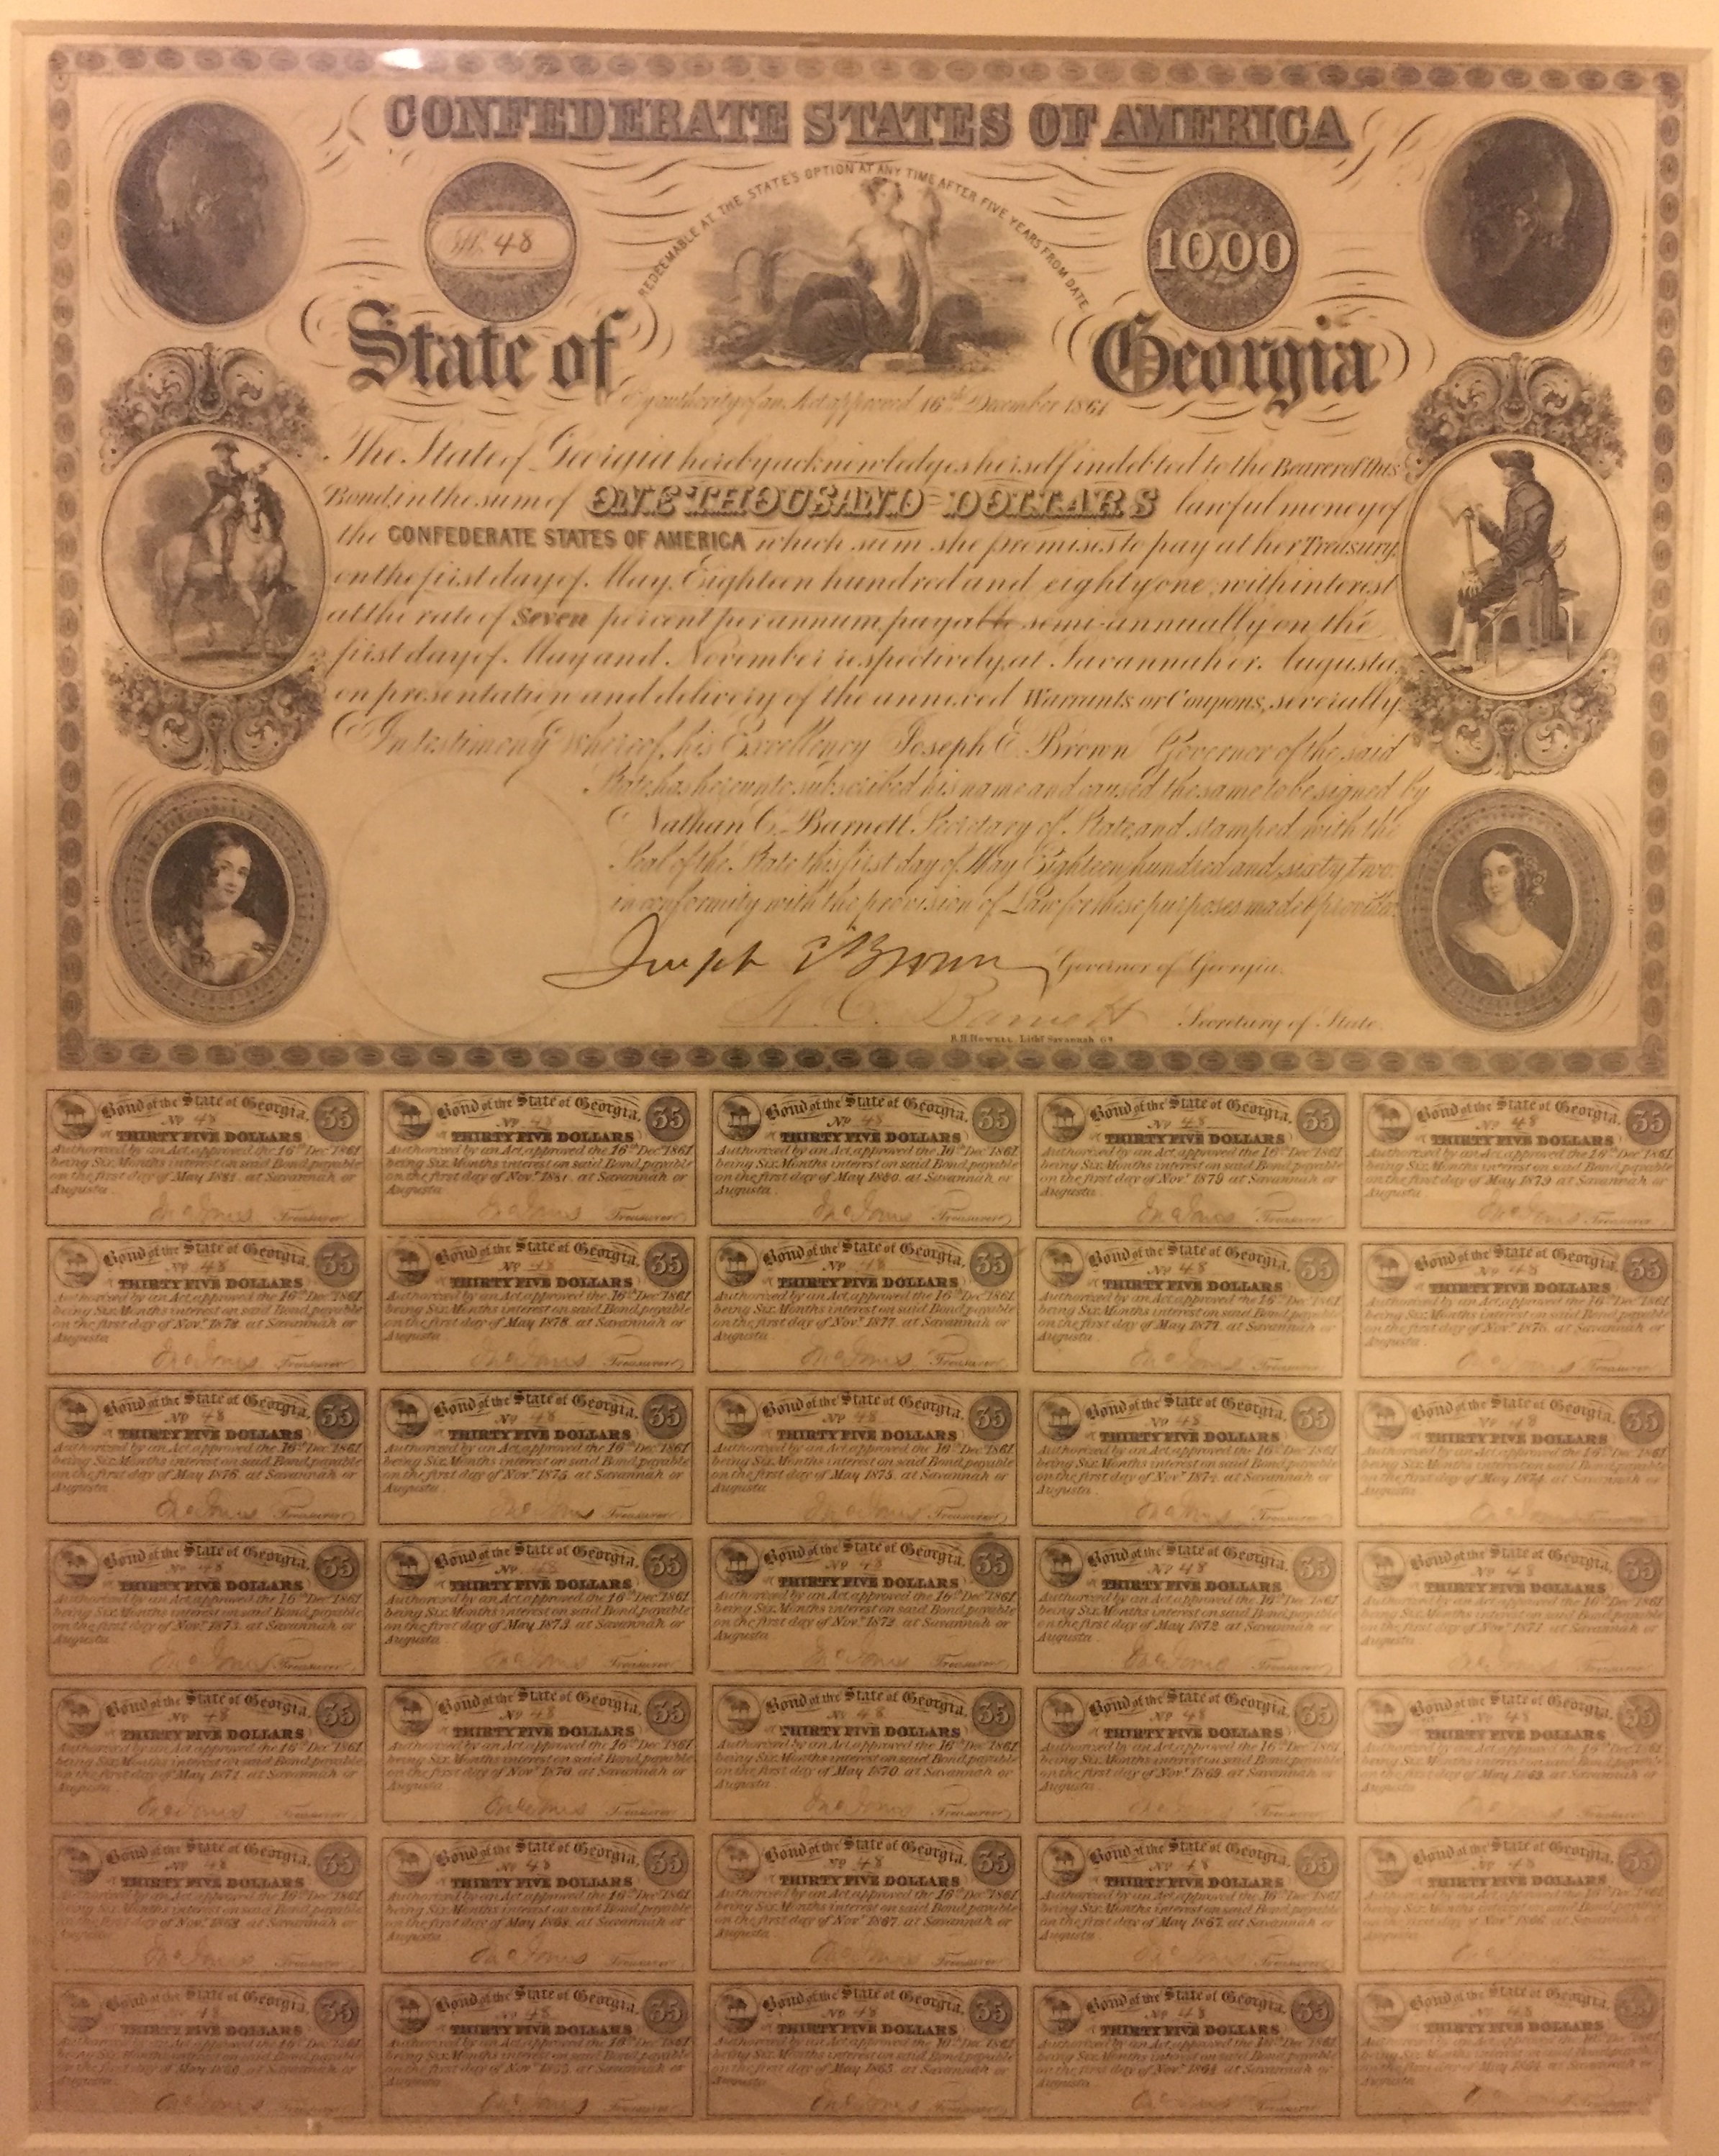 CONFEDERATE STATES OF AMERICA
REDEEMABLE AT THE STATE'S OPTION AT ANY TIME AFTER FIVE YEARS FROM DATE
No. 48
1000
State of Georgia
By authority of an Act approved 16th December 1861
The State of Georgia hereby acknowledges herself indebted to the Bearer of this
Bond, in the sum of ONE THOUSAND DOLLARS lawful money of
the CONFEDERATE STATES OF AMERICA which sum she promises to pay at her Treasury
on the first day of May, Eighteen hundred and eighty one, with interest
at the rate of Seven percent per annum, payable semi-annually on the
first day of May and November respectively, at Savannah or Augusta,
on presentation and delivery of the annexed Warrants or Coupons, severally
In testimony Whereof, his Excellency Joseph E. Brown Governor of the said
State, has hereunto subscribed his name and caused the same to be signed by
Nathan C. Barnett Secretary of State, and stamped with the
Seal of the State this first day of May Eighteen hundred and sixty two
in conformity with the provision of Law for these purposes made & provided.
Joseph E Brown Governor of Georgia.
N. C. Barnett Secretary of State.
Lith. Savannah Ga
Bond of the State of Georgia. 35
No 48
THIRTY FIVE DOLLARS
Authorized by an Act, approved the 16th Dec 1861
being Six Months interest on said Bond, payable
on the first day of May 1881. at Savannah or
Augusta.
Jno Jones Treasurer
Bond of the State of Georgia. 35
No 48
THIRTY FIVE DOLLARS
Authorized by an Act, approved the 16th Dec 1861
being Six Months interest on said Bond, payable
on the first day of Nov. at Savannah or
Augusta.
Jno Jones Treasurer
Bond of the State of Georgia. 35
No 48
THIRTY FIVE DOLLARS
Authorized by an Act, approved the 16th Dec 1861
being Six Months interest on said Bond, payable
on the first day of May 1880. at Savannah or
Augusta.
Jno Jones Treasurer
Bond of the State of Georgia. 35
No 48
THIRTY FIVE DOLLARS
Authorized by an Act, approved the 16th Dec 1861
being Six Months interest on said Bond, payable
on the first day of Nov. 1879 at Savannah or
Augusta.
Jno Jones Treasurer
Bond of the State of Georgia. 35
No 48
THIRTY FIVE DOLLARS
Authorized by an Act, approved the 16th Dec 1861
being Six Months interest on said Bond, payable
on the first day of May 1879 at Savannah or
Augusta.
Jno Jones Treasurer
Bond of the State of Georgia. 35
No 48
THIRTY FIVE DOLLARS
Authorized by an Act, approved the 16th Dec 1861
being Six Months interest on said Bond, payable
on the first day of Nov. 1878. at Savannah or
Augusta.
Jno Jones Treasurer
Bond of the State of Georgia. 35
No 48
THIRTY FIVE DOLLARS
Authorized by an Act, approved the 16th Dec 1861
being Six Months interest on said Bond, payable
on the first day of May 1878. at Savannah or
Augusta.
Jno Jones Treasurer
Bond of the State of Georgia. 35
No 48
THIRTY FIVE DOLLARS
Authorized by an Act, approved the 16th Dec 1861
being Six Months interest on said Bond, payable
on the first day of Nov. 1877. at Savannah or
Augusta.
Jno Jones Treasurer
Bond of the State of Georgia. 35
No 48
THIRTY FIVE DOLLARS
Authorized by an Act, approved the 16th Dec 1861
being Six Months interest on said Bond, payable
on the first day of May 1877. at Savannah or
Augusta.
Jno Jones Treasurer
Bond of the State of Georgia. 35
No 48
THIRTY FIVE DOLLARS
Authorized by an Act, approved the 16th Dec 1861
being Six Months interest on said Bond, payable
on the first day of Nov. 1876. at Savannah or
Augusta.
Jno Jones Treasurer
Bond of the State of Georgia. 35
No 48
THIRTY FIVE DOLLARS
Authorized by an Act, approved the 16th Dec 1861
being Six Months interest on said Bond, payable
on the first day of May 1876. at Savannah or
Augusta.
Jno Jones Treasurer
Bond of the State of Georgia. 35
No 48
THIRTY FIVE DOLLARS
Authorized by an Act, approved the 16th Dec 1861
being Six Months interest on said Bond, payable
on the first day of Nov. 1875. at Savannah or
Augusta.
Jno Jones Treasurer
Bond of the State of Georgia. 35
No 48
THIRTY FIVE DOLLARS
Authorized by an Act, approved the 16th Dec 1861
being Six Months interest on said Bond, payable
on the first day of May 1875. at Savannah or
Augusta.
Jno Jones Treasurer
Bond of the State of Georgia. 35
No 48
THIRTY FIVE DOLLARS
Authorized by an Act, approved the 16th Dec 1861
being Six Months interest on said Bond, payable
on the first day of Nov. 1874. at Savannah or
Augusta.
Jno Jones Treasurer
Bond of the State of Georgia. 35
No 48
THIRTY FIVE DOLLARS
Authorized by an Act, approved the 16th Dec 1861
being Six Months interest on said Bond, payable
on the first day of May 1874. at Savannah or
Augusta.
Jno Jones Treasurer
Bond of the State of Georgia. 35
No 48
THIRTY FIVE DOLLARS
Authorized by an Act, approved the 16th Dec 1861
being Six Months interest on said Bond, payable
on the first day of Nov. 1873. at Savannah or
Augusta.
Jno Jones Treasurer
Bond of the State of Georgia. 35
No 48
THIRTY FIVE DOLLARS
Authorized by an Act, approved the 16th Dec 1861
being Six Months interest on said Bond, payable
on the first day of May 1873. at Savannah or
Augusta.
Jno Jones Treasurer
Bond of the State of Georgia. 35
No 48
THIRTY FIVE DOLLARS
Authorized by an Act, approved the 16th Dec 1861
being Six Months interest on said Bond, payable
on the first day of Nov. 1872. at Savannah or
Augusta.
Jno Jones Treasurer
Bond of the State of Georgia. 35
No 48
THIRTY FIVE DOLLARS
Authorized by an Act, approved the 16th Dec 1861
being Six Months interest on said Bond, payable
on the first day of May 1872. at Savannah or
Augusta.
Jno Jones Treasurer
Bond of the State of Georgia. 35
No 48
THIRTY FIVE DOLLARS
Authorized by an Act, approved the 16th Dec 1861
being Six Months interest on said Bond, payable
on the first day of Nov. 1871. at Savannah or
Augusta.
Jno Jones Treasurer
Bond of the State of Georgia. 35
No 48
THIRTY FIVE DOLLARS
Authorized by an Act, approved the 16th Dec 1861
being Six Months interest on said Bond, payable
on the first day of May 1871. at Savannah or
Augusta.
Jno Jones Treasurer
Bond of the State of Georgia. 35
No 48
THIRTY FIVE DOLLARS
Authorized by an Act, approved the 16th Dec 1861
being Six Months interest on said Bond, payable
on the first day of Nov. 1870 at Savannah or
Augusta.
Jno Jones Treasurer
Bond of the State of Georgia. 35
No 48
THIRTY FIVE DOLLARS
Authorized by an Act, approved the 16th Dec 1861
being Six Months interest on said Bond, payable
on the first day of May 1870. at Savannah or
Augusta.
Jno Jones Treasurer
Bond of the State of Georgia. 35
No 48
THIRTY FIVE DOLLARS
Authorized by an Act, approved the 16th Dec 1861
being Six Months interest on said Bond, payable
on the first day of Nov. 1869. at Savannah or
Augusta.
Jno Jones Treasurer
Bond of the State of Georgia. 35
No 48
THIRTY FIVE DOLLARS
Authorized by an Act, approved the 16th Dec 1861
being Six Months interest on said Bond, payable
on the first day of May 1869. at Savannah or
Augusta.
Jno Jones Treasurer
Bond of the State of Georgia. 35
No 48
THIRTY FIVE DOLLARS
Authorized by an Act, approved the 16th Dec 1861
being Six Months interest on said Bond, payable
on the first day of Nov. 1868. at Savannah or
Augusta.
Jno Jones Treasurer
Bond of the State of Georgia. 35
No 48
THIRTY FIVE DOLLARS
Authorized by an Act, approved the 16th Dec 1861
being Six Months interest on said Bond, payable
on the first day of May 1868. at Savannah or
Augusta.
Jno Jones Treasurer
Bond of the State of Georgia. 35
No 48
THIRTY FIVE DOLLARS
Authorized by an Act, approved the 16th Dec 1861
being Six Months interest on said Bond, payable
on the first day of Nov. 1867. at Savannah or
Augusta.
Jno Jones Treasurer
Bond of the State of Georgia. 35
No 48
THIRTY FIVE DOLLARS
Authorized by an Act, approved the 16th Dec 1861
being Six Months interest on said Bond, payable
on the first day of May 1867. at Savannah or
Augusta.
Jno Jones Treasurer
Bond of the State of Georgia. 35
No 48
THIRTY FIVE DOLLARS
Authorized by an Act, approved the 16th Dec 1861
being Six Months interest on said Bond, payable
on the first day of Nov. 1866. at Savannah or
Augusta.
Jno Jones Treasurer
Bond of the State of Georgia. 35
No 48
THIRTY FIVE DOLLARS
Authorized by an Act, approved the 16th Dec 1861
being Six Months interest on said Bond, payable
on the first day of May at Savannah or
Augusta.
Jno Jones Treasurer
Bond of the State of Georgia. 35
No 48
THIRTY FIVE DOLLARS
Authorized by an Act, approved the 16th Dec 1861
being Six Months interest on said Bond, payable
on the first day of Nov. 1865. at Savannah or
Augusta.
Jno Jones Treasurer
Bond of the State of Georgia. 35
No 48
THIRTY FIVE DOLLARS
Authorized by an Act, approved the 16th Dec 1861
being Six Months interest on said Bond, payable
on the first day of May 1865. at Savannah or
Augusta.
Jno Jones Treasurer
Bond of the State of Georgia. 35
No 48
THIRTY FIVE DOLLARS
Authorized by an Act, approved the 16th Dec 1861
being Six Months interest on said Bond, payable
on the first day of Nov. 1864 at Savannah or
Augusta.
Jno Jones Treasurer
Bond of the State of Georgia. 35
No 48
THIRTY FIVE DOLLARS
Authorized by an Act, approved the 16th Dec 1861
being Six Months interest on said Bond, payable
on the first day of May 1864. at Savannah or
Augusta.
Jno Jones Treasurer